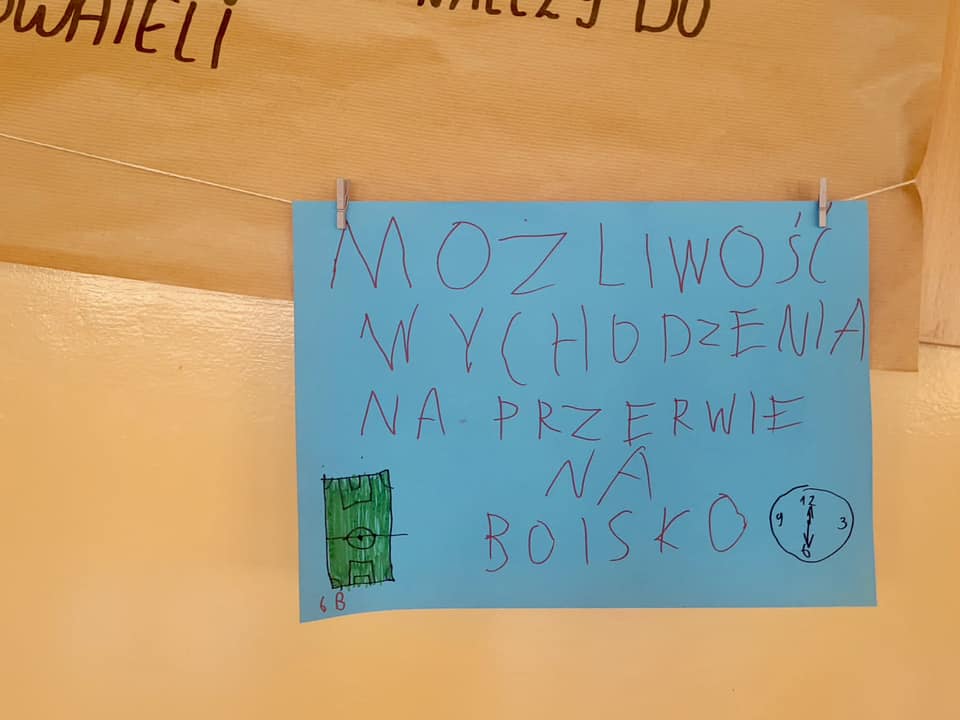 NALEŻY DO
MOŻLIWOŚĆ
WYCHODZENIA
NA PRZERWIE
NA
BOISKO
12
9 3
6
6 B